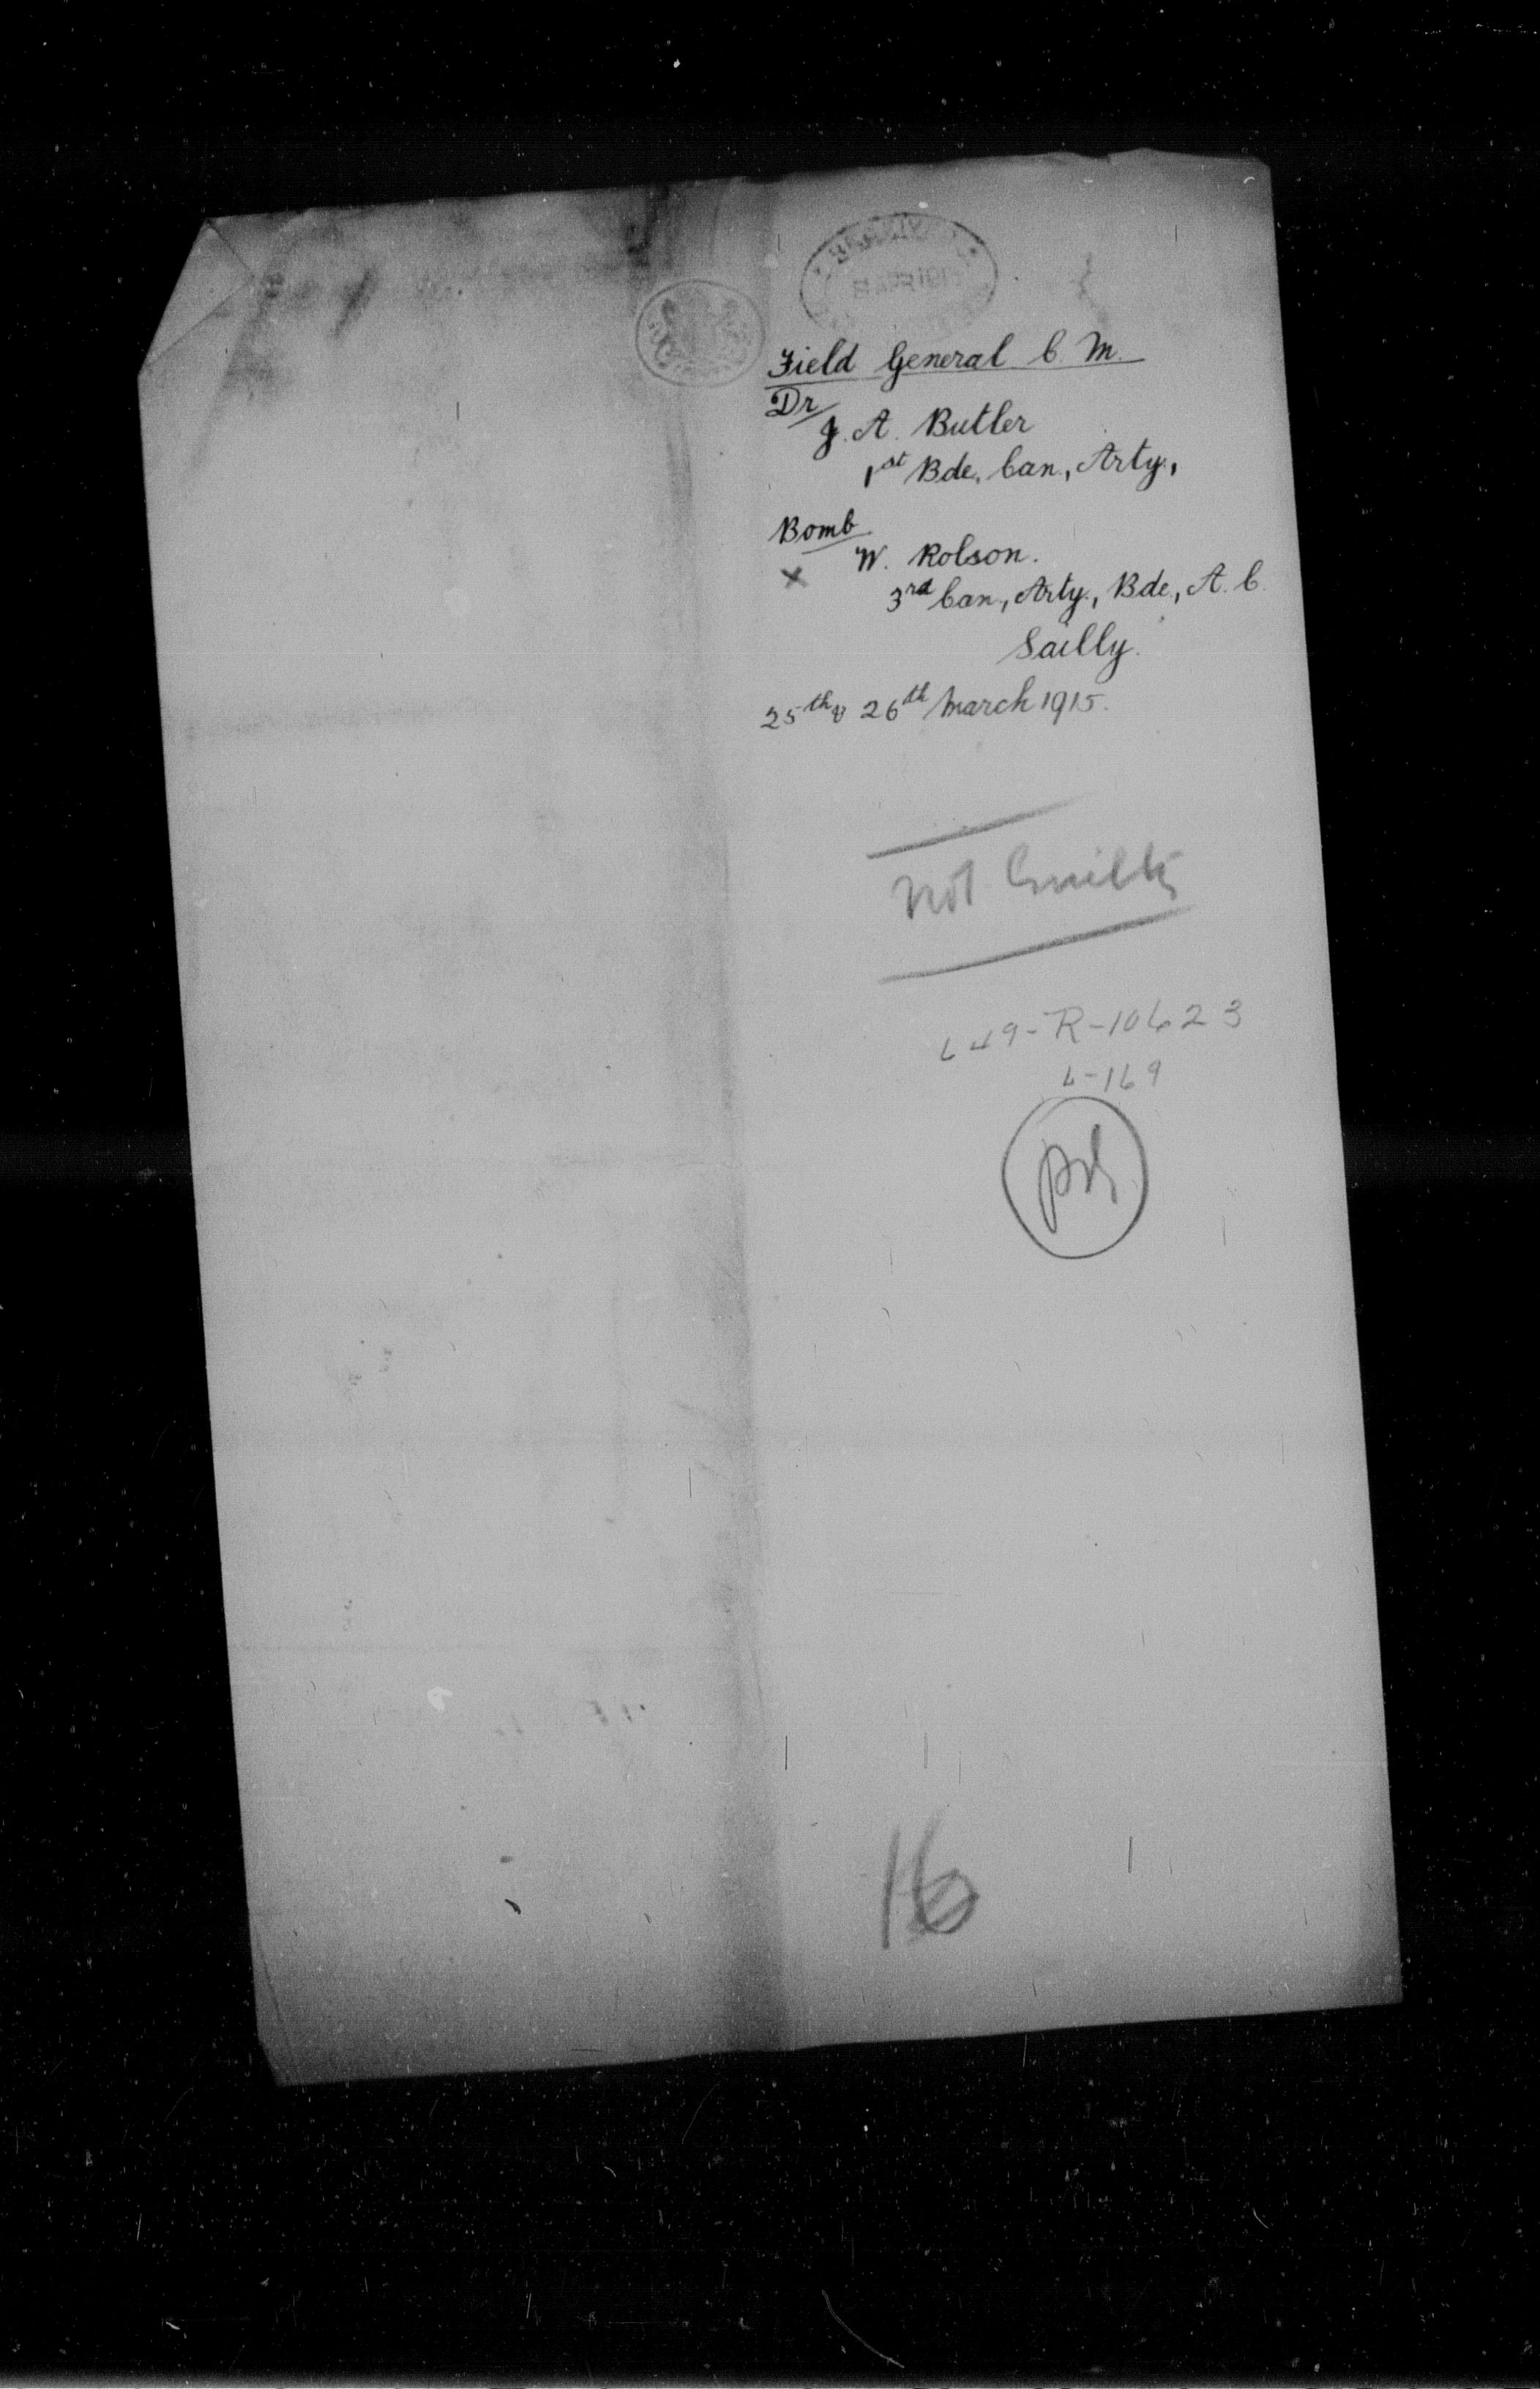 APR 1915
Field General C. M.
Dr
J. A. Butler
1st Bde, Can., Arty.,
Bomb
W. Rolson.
x
3rd Can., Arty., Bde., A. C.
Sailly.
25th & 26th March 1915.
Not Guilty
649-R-10623
6-169
16